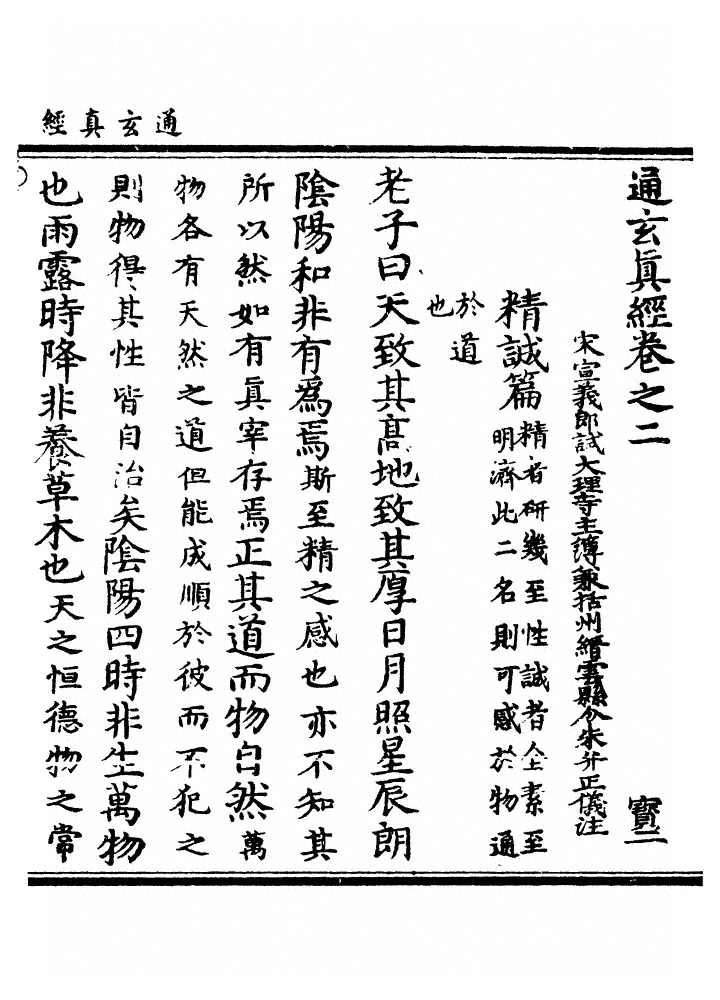 通玄真經
通玄眞經卷之二 寳二
宋宣義郎試大理寺主簿兼括州縉雲縣令朱弁正儀注
精誠篇 精者研幾至性誠者全素至
明濟此二名則可感於物通
於道
也
老子曰天致其高地致其厚日月照星辰朗
陰陽和非有爲焉斯至精之感也亦不知其
所以然如有眞宰存焉正其道而物自然萬
物各有天然之道但能成順於彼而不犯之
則物得其性皆自治矣陰陽四時非生萬物
也雨露時降非養草木也天之恒德物之常